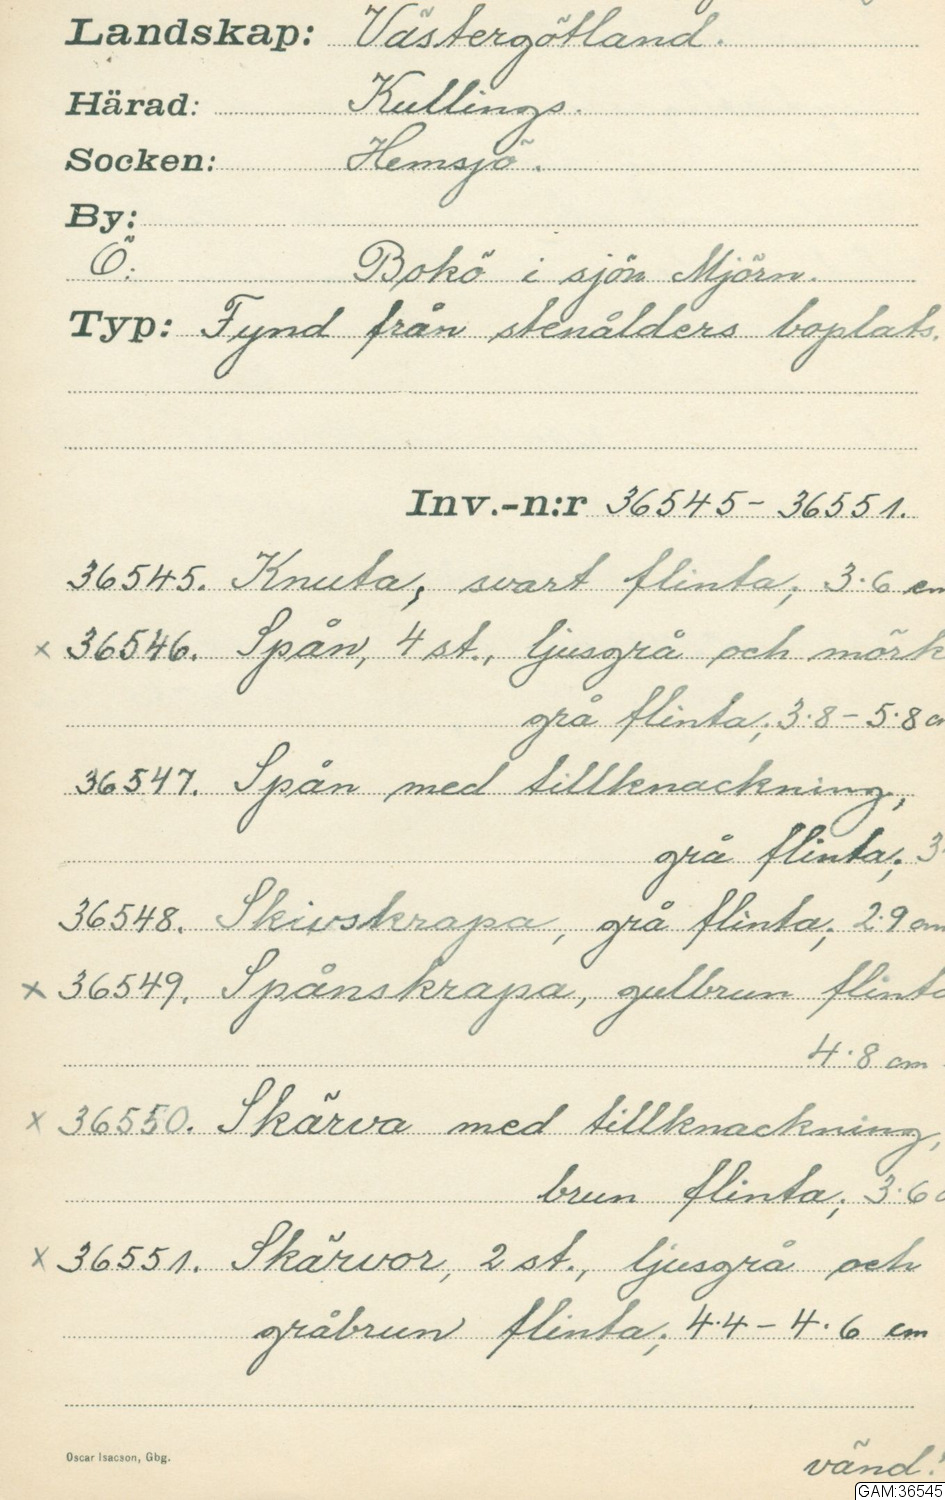 Landskap: Västergötland.
Härad: Kullings.
Socken: Hemsjö.
By:
Ö: Bokö i sjön Mjörn.
Typ: Fynd från stenålders boplats.
Inv.-n:r 36545 - 36551.
36545. Knuta, svart flinta; 3·6 cm
x 36546. Spån, 4 st., ljusgrå och mörk
grå flinta; 3·8 - 5·8 c
36547. Spån med tillknackning,
grå flinta; 3·
36548. Skivskrapa, grå flinta; 2·9 cm
x 36549. Spånskrapa, gulbrun flinta
4·8 cm
x 36550. Skärva med tillknackning,
brun flinta; 3·6 c
x 36551. Skärvor, 2 st., ljusgrå och
gråbrun flinta; 4·4 - 4·6 cm
Oscar Isacson, Gbg.
vänd!
GAM:36545